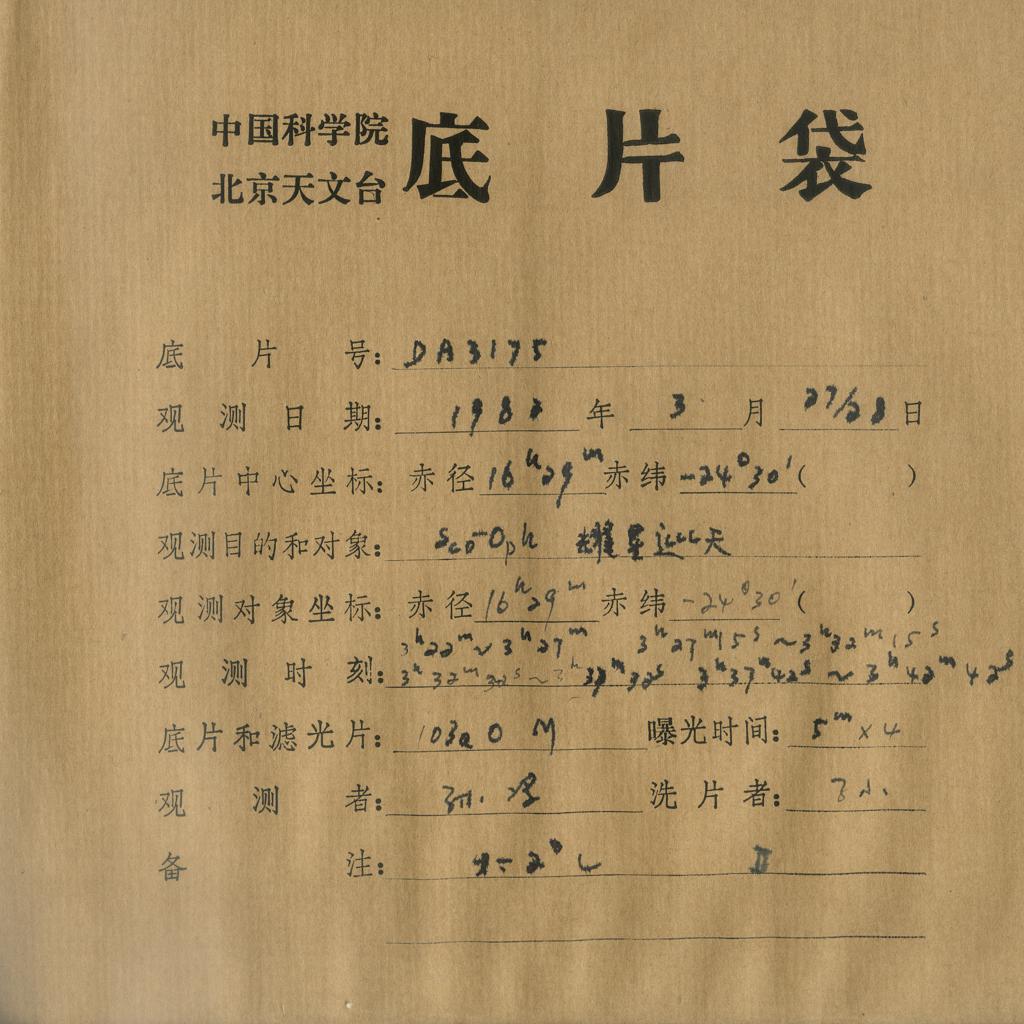 中国科学院
北京天文台 底片袋
底片号: DA3175
观测日期: 1982 年 3 月 27/28 日
底片中心坐标: 赤径 16h29m 赤纬 -24°30′( )
观测目的和对象: Sco-Oph 耀星巡天
观测对象坐标: 赤径 16h29m 赤纬 -24°30′( )
3h22m~3h27m 3h27m15s~3h32m15s
观测时刻: 3h32m32s~3h37m32s 3h37m42s~3h42m42s
底片和滤光片: 103aO M 曝光时间: 5m×4
观测者: 洗片者:
备注: II